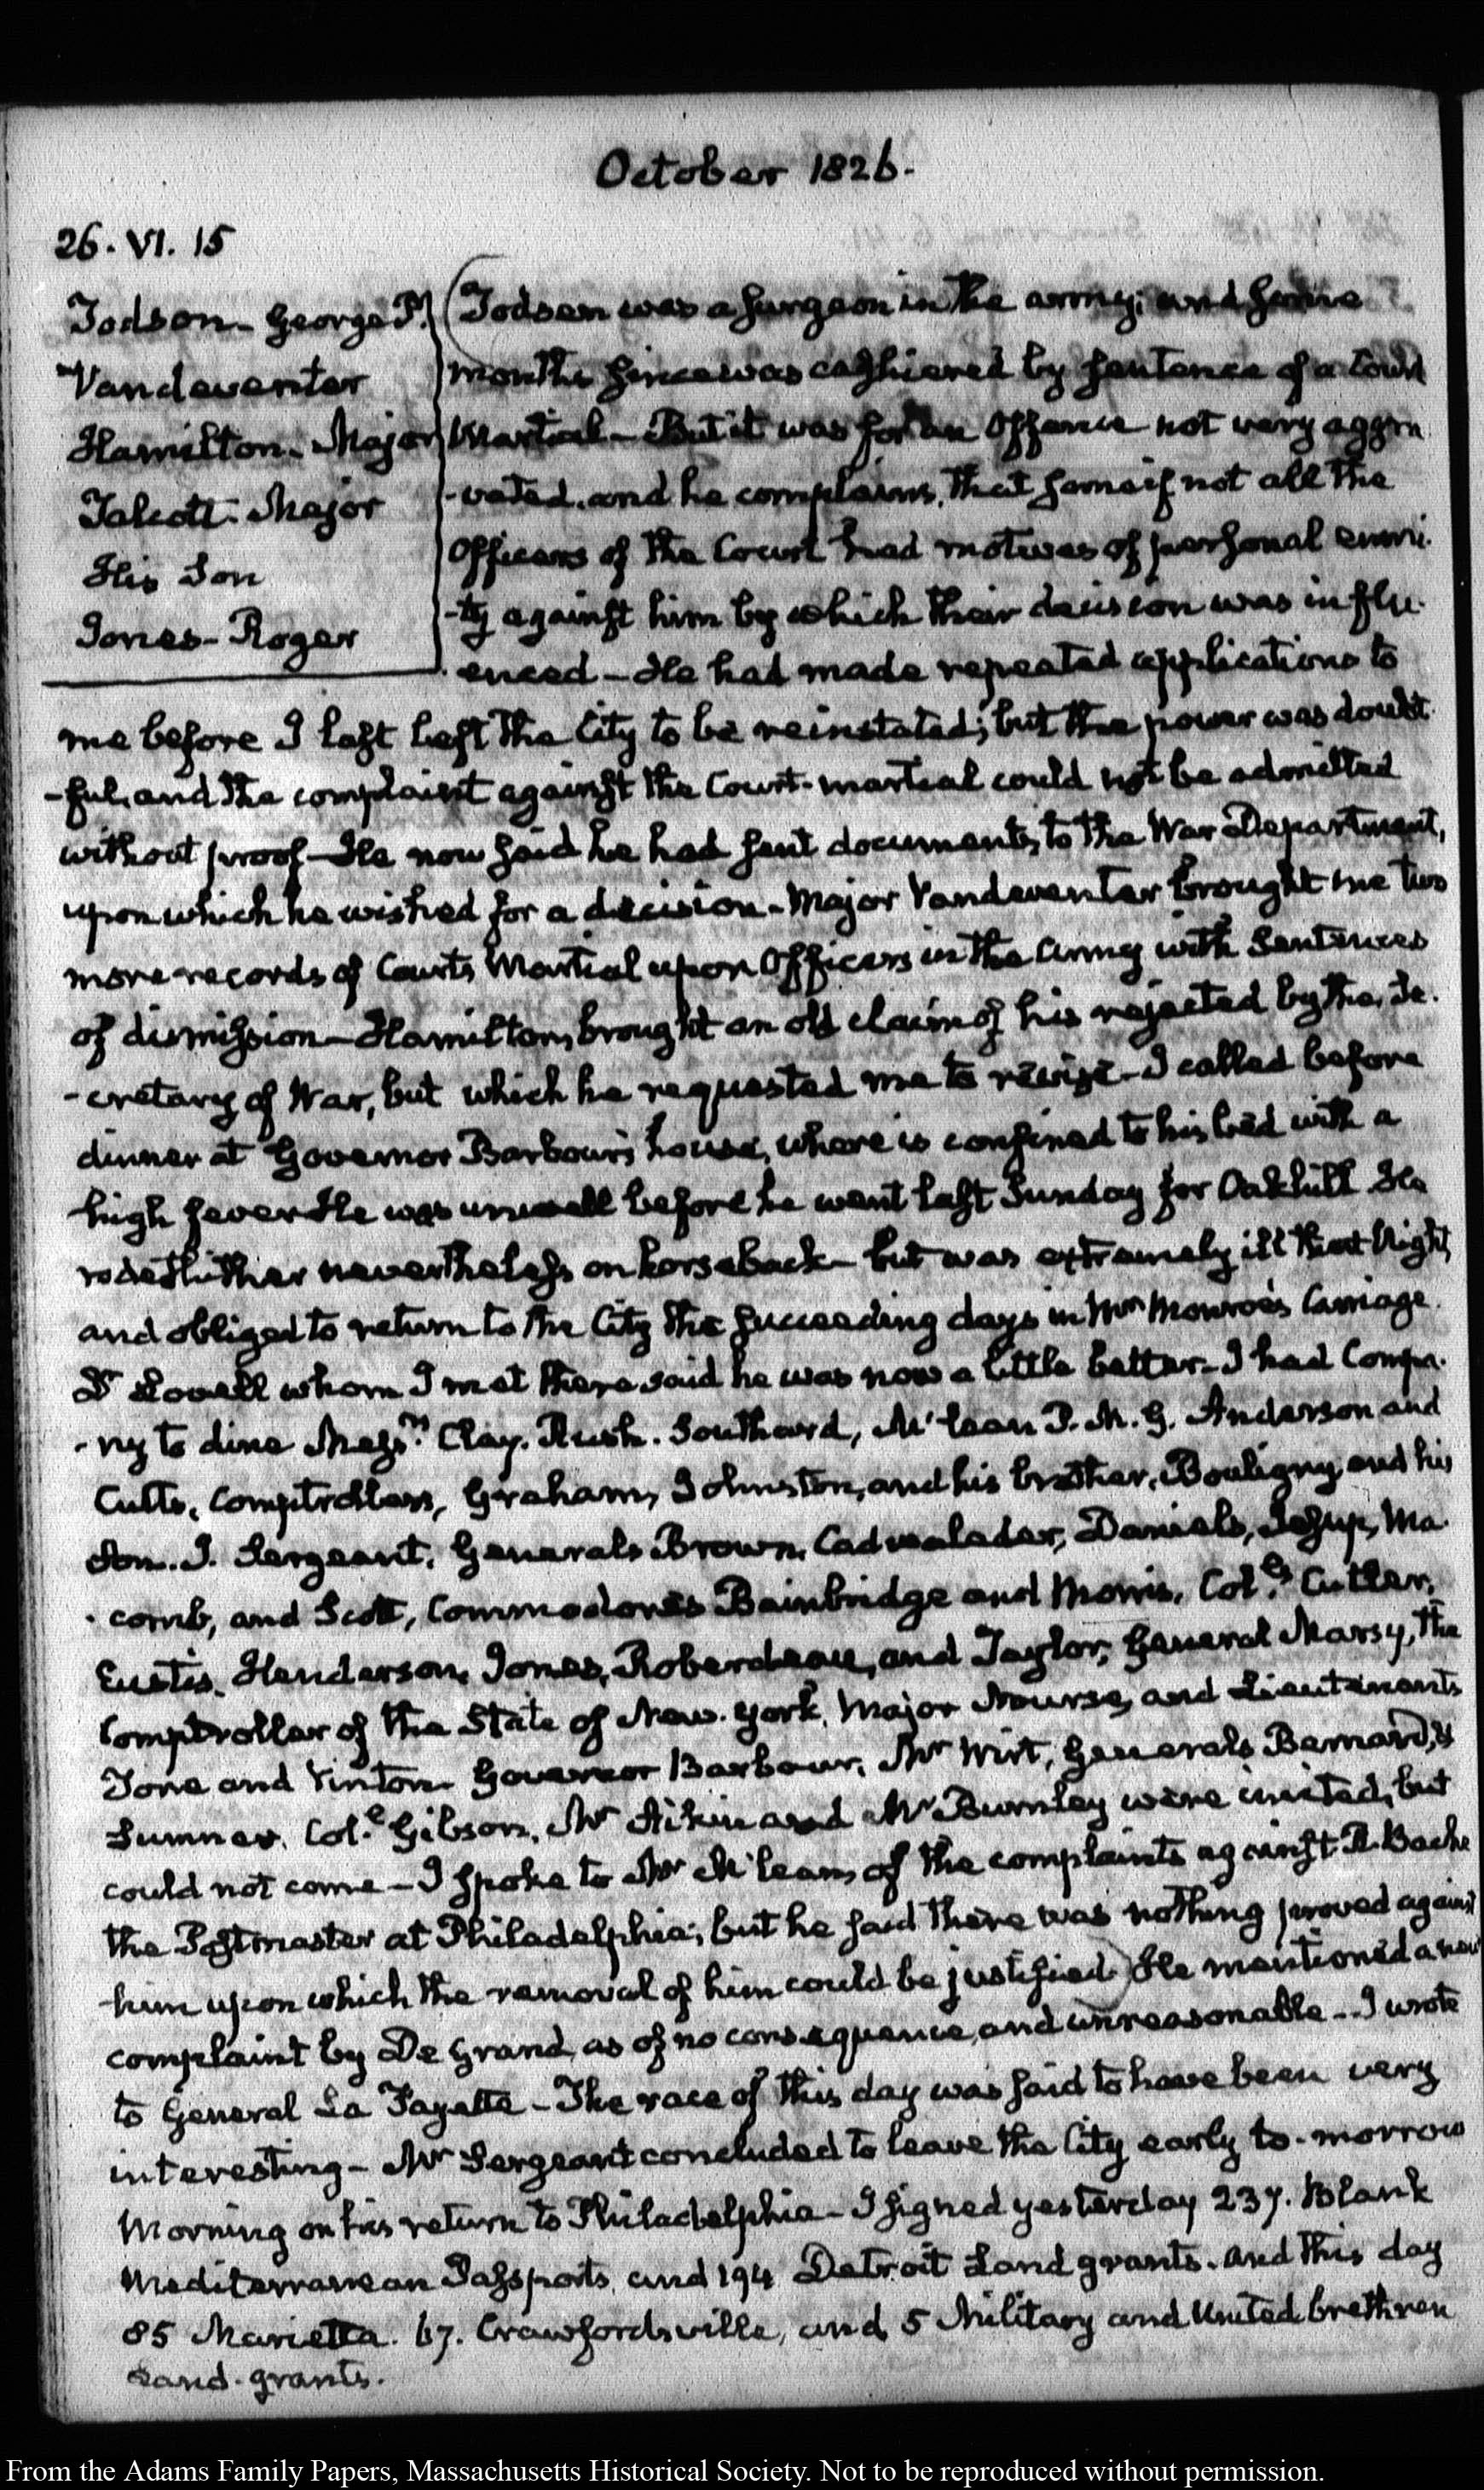 October 1826.
26. VI. 15
Todson - George P.
Vandeventer
Hamilton - Major
Talcott - Major
His Son
Jones - Roger
(Todson was a surgeon in the army; and some
months since was cashiered by sentence of a Court
Martial - But it was for an Offence not very aggra
-vated, and he complains, that some if not all the
Officers of the Court had motives of personal enmi-
-ty against him by which their decision was influ-
enced - He had made repeated applications to
me before I last left the City to be reinstated; but the power was doubt-
-ful, and the complaint against the Court-martial could not be admitted
without proof - He now said he had sent documents, to the War Department,
upon which he wished for a decision - Major Vandeventer brought me two
more records of Courts Martial upon Officers in the Army with Sentences
of dismission - Hamilton, brought an old claim of his rejected by the Se-
-cretary of War, but which he requested me to revise - I called before
dinner at Governor Barbour's house, where is confined to his bed with a
high fever He was unwell before he went last Sunday for Oakhill He
rode thither nevertheless on horseback - but was extremely ill that Night,
and obliged to return to the City the succeeding days in Mr Monroe's Carriage.
Dr Lovell whom I met there said he was now a little better - I had Compa-
-ny to dine Messrs Clay. Rush. Southard, McLean P. M. G. Anderson and
Cutts, Comptrollers, Graham, Johnston, and his brother, Bouligny and his
Son. J. Sergeant, Generals Brown, Cadwalader, Daniels, Jesup, Ma-
-comb, and Scott, Commodores Bainbridge and Morris, Cols Cutler,
Eustis, Henderson, Jones, Roberdeau, and Taylor, General Marcy, the
Comptroller of the State of New-York, Major Nourse, and Lieutenants
Tone and Vinton - Governor Barbour, Mr Wirt, Generals Bernard, &
Sumner, Col. Gibson, Mr Aikin and Mr Burnley were invited, but
could not come - I spoke to Mr McLean, of the complaints against R. Bache
the Postmaster at Philadelphia; but he said there was nothing proved against
him upon which the removal of him could be justified.) He mentioned a new
complaint by De Grand, as of no consequence, and unreasonable - I wrote
to General La Fayette - The race of this day was said to have been very
interesting - Mr Sergeant concluded to leave the City early to-morrow
Morning on his return to Philadelphia - I signed yesterday 237. Blank
Mediterranean Passports, and 194 Detroit Land grants. and this day
85 Marietta. 67. Crawfordsville, and 5 Military and United brethren
Land-grants.
From the Adams Family Papers, Massachusetts Historical Society. Not to be reproduced without permission.